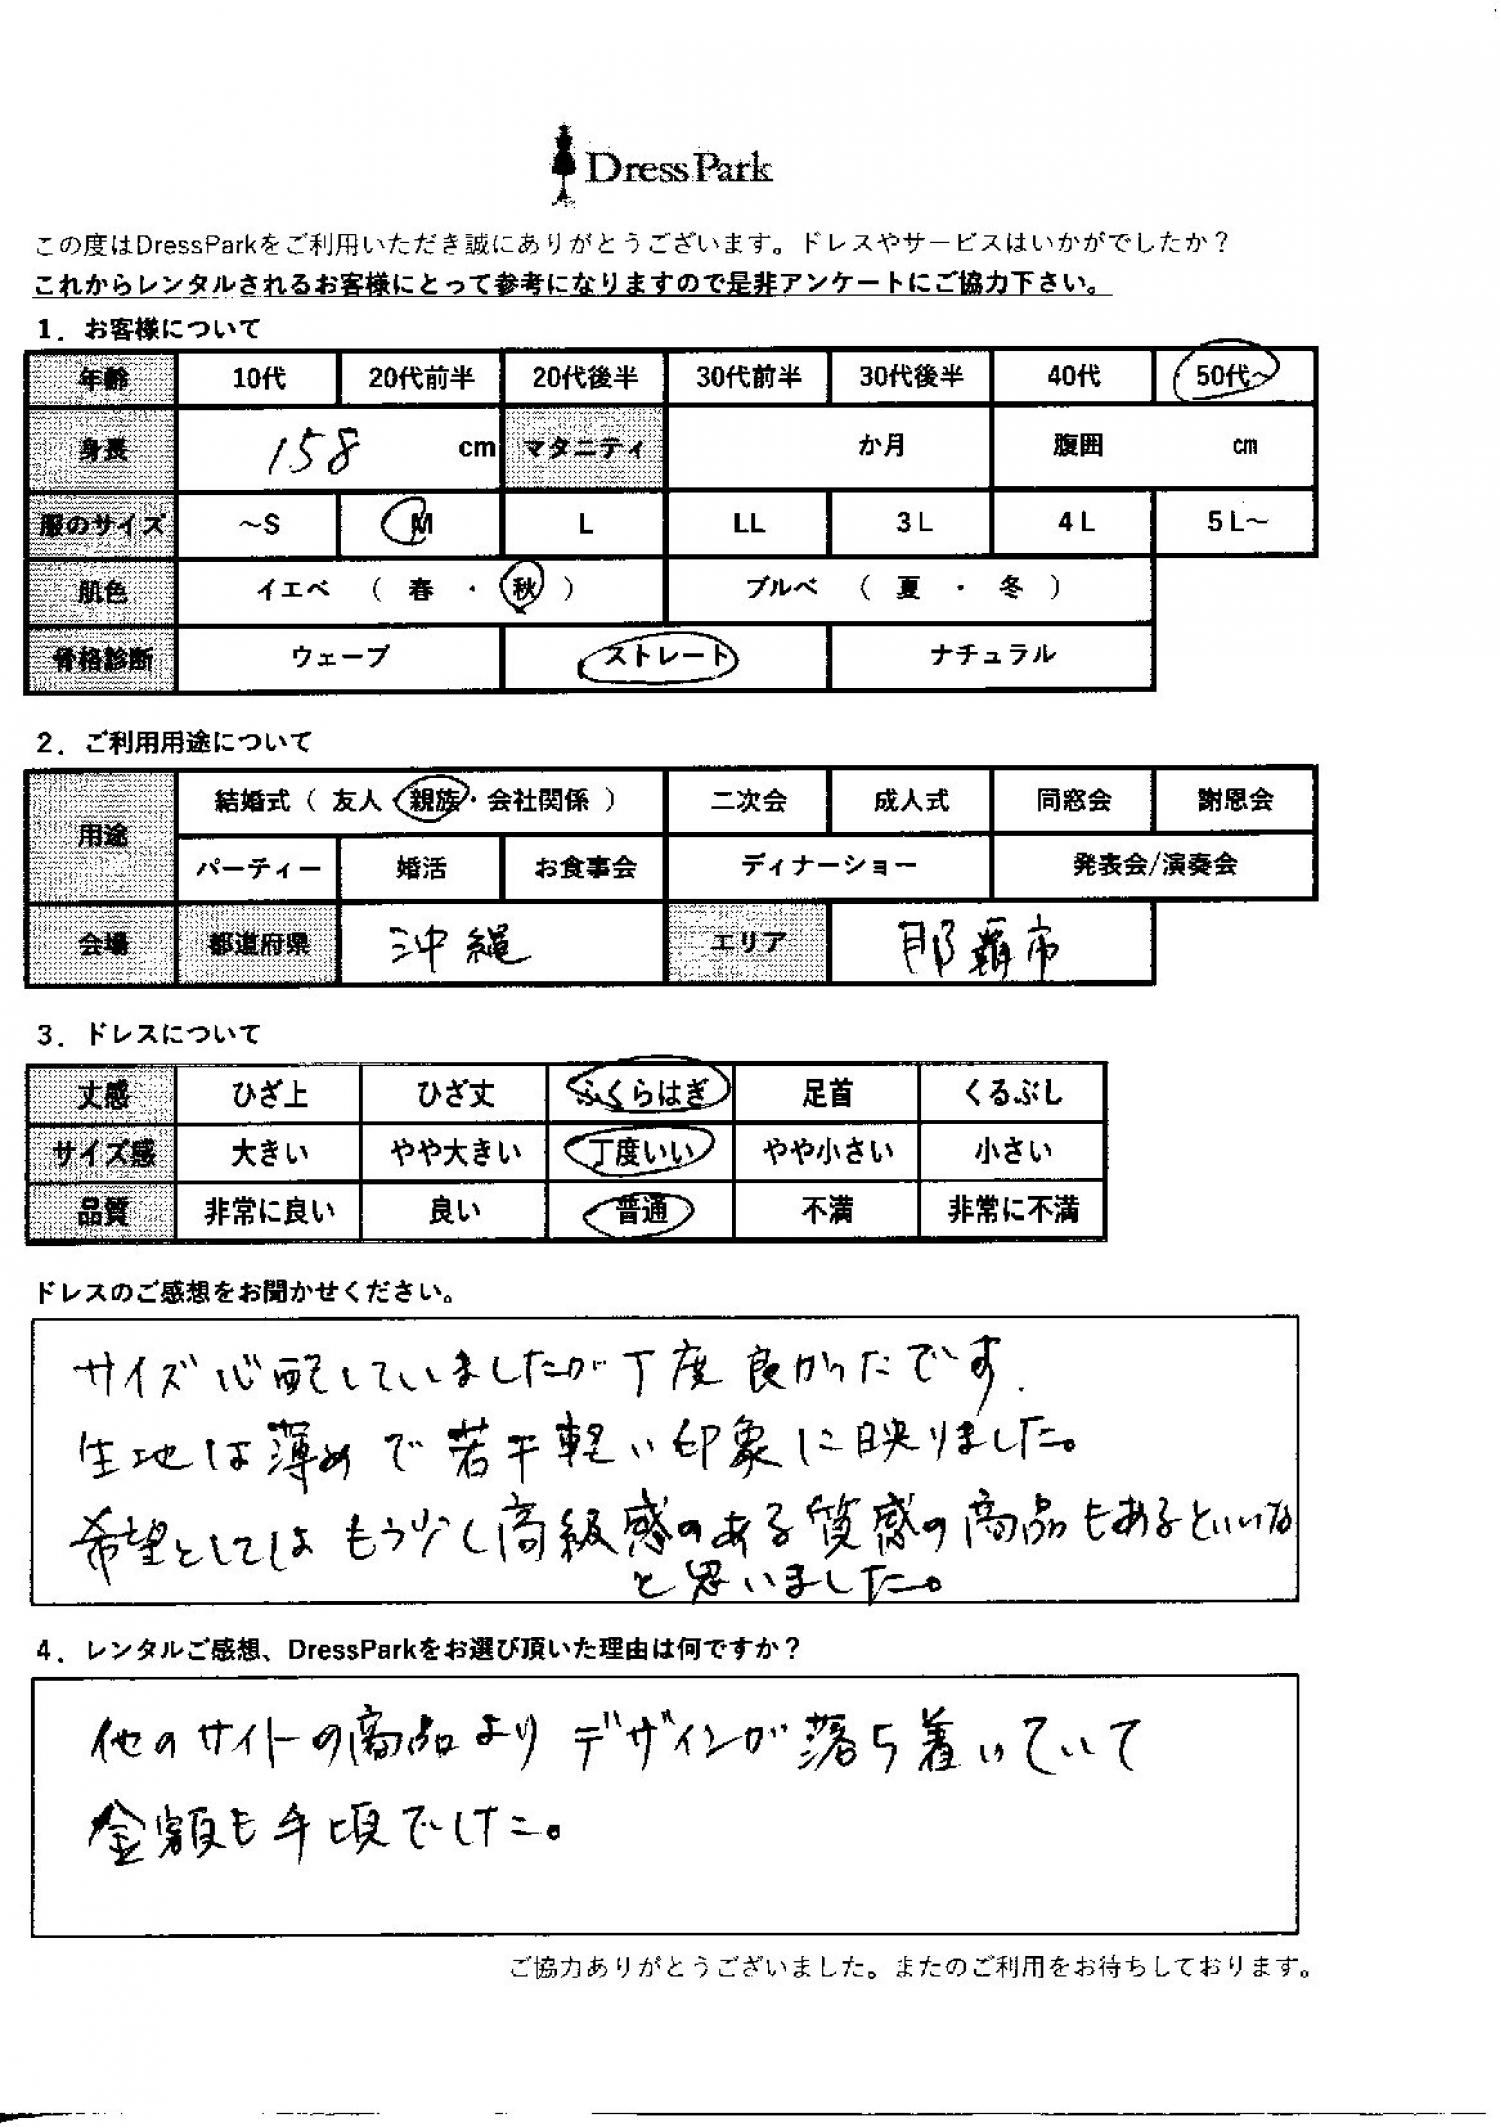 DressPark
この度はDressParkをご利用いただき誠にありがとうございます。ドレスやサービスはいかがでしたか？
これからレンタルされるお客様にとって参考になりますので是非アンケートにご協力下さい。
1．お客様について
年齢 10代 20代前半 20代後半 30代前半 30代後半 40代 50代～
身長 158 cm マタニティ か月 腹囲 cm
服のサイズ ～S M L LL 3L 4L 5L～
肌色 イエベ （ 春 ・ 秋 ） ブルベ （ 夏 ・ 冬 ）
骨格診断 ウェーブ ストレート ナチュラル
2．ご利用用途について
用途 結婚式（ 友人・親族・会社関係 ） 二次会 成人式 同窓会 謝恩会
パーティー 婚活 お食事会 ディナーショー 発表会/演奏会
会場 都道府県 沖縄 エリア 那覇市
3．ドレスについて
丈感 ひざ上 ひざ丈 ふくらはぎ 足首 くるぶし
サイズ感 大きい やや大きい 丁度いい やや小さい 小さい
品質 非常に良い 良い 普通 不満 非常に不満
ドレスのご感想をお聞かせください。
サイズ心配していましたが丁度良かったです.
生地は薄めで若干軽い印象に映りました。
希望としてはもう少し高級感のある質感の商品もあるといいな
と思いました。
4．レンタルご感想、DressParkをお選び頂いた理由は何ですか？
他のサイトの商品よりデザインが落ち着いていて
金額も手頃でした。
ご協力ありがとうございました。またのご利用をお待ちしております。